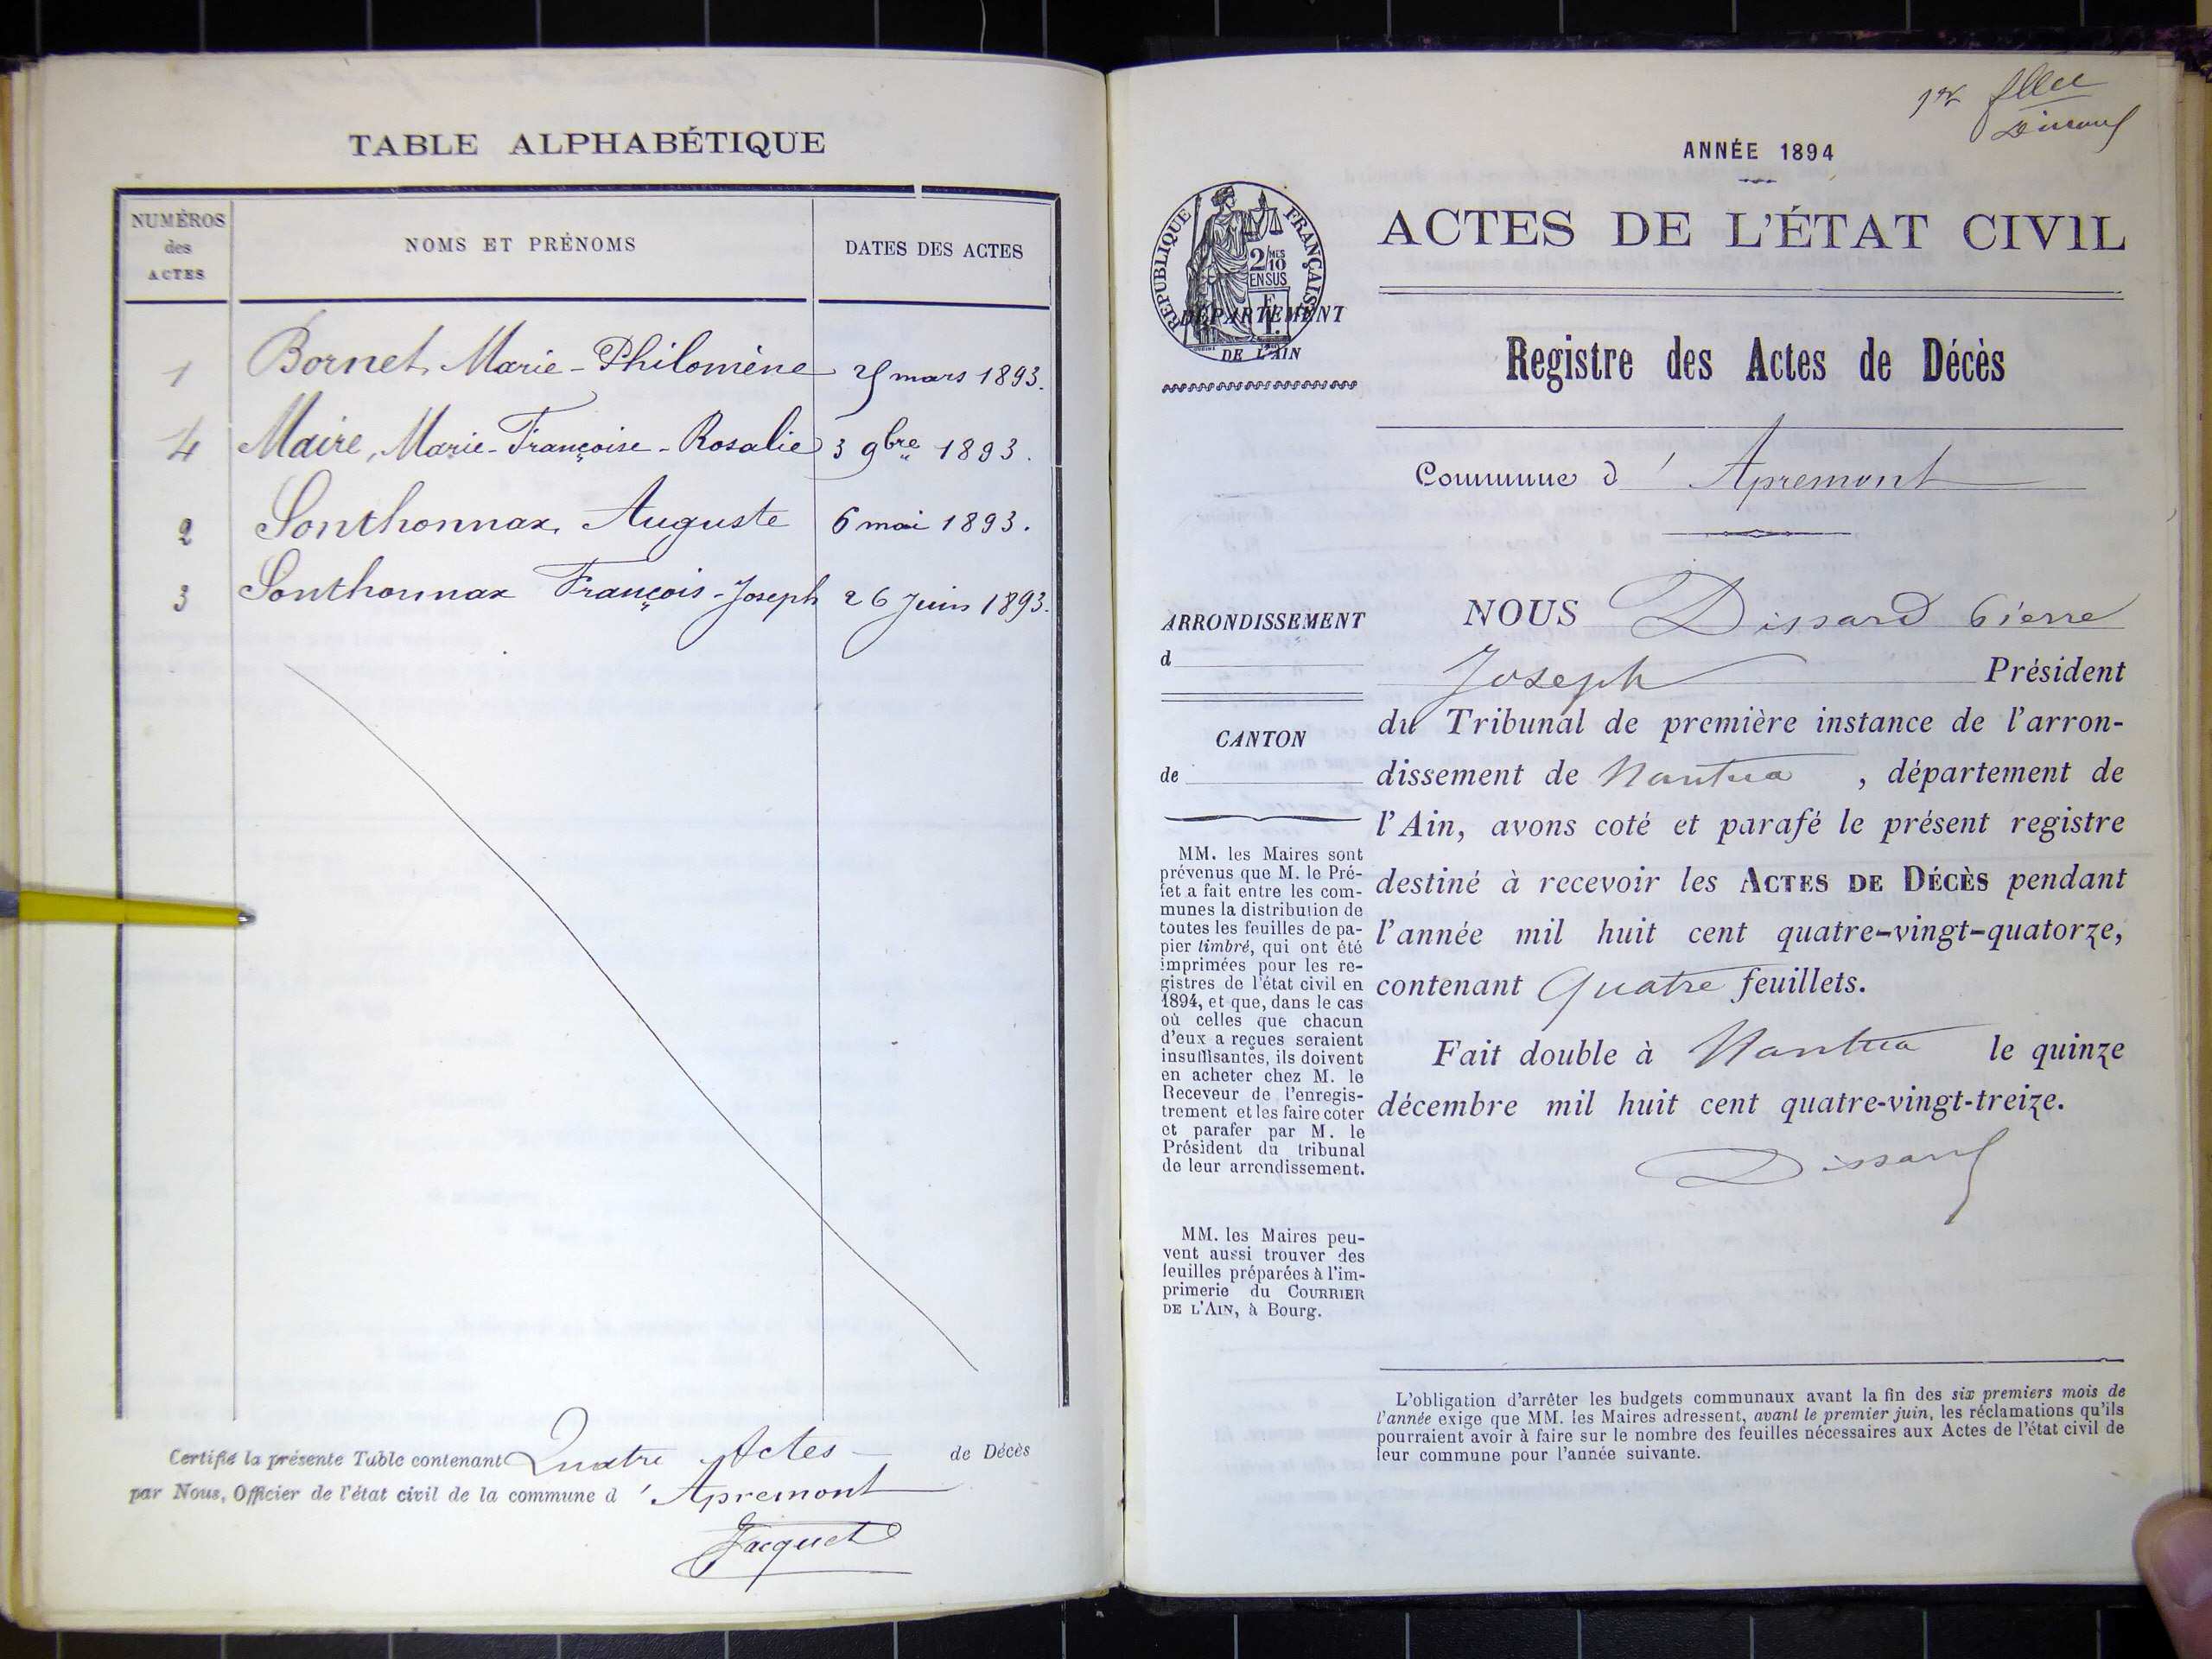 TABLE ALPHABÉTIQUE
NUMÉROS des ACTES
NOMS ET PRÉNOMS
DATES DES ACTES
1 Bornet, Marie-Philomène mars 1893.
4 Maire, Marie-Françoise-Rosalie 3 9bre 1893.
2 Sonthonnax, Auguste 6 mai 1893.
3 Sonthonnax François-Joseph 26 Juin 1893.
Certifié la présente Table contenant Quatre Actes de Décès
par Nous, Officier de l'état civil de la commune d'Apremont
Jacquet
1er
ANNÉE 1894
ACTES DE L'ÉTAT CIVIL
RÉPUBLIQUE FRANÇAISE
2/10 MES
EN SUS
DÉPARTEMENT
DE L'AIN
Registre des Actes de Décès
Commune d'Apremont
ARRONDISSEMENT
d
CANTON
de
MM. les Maires sont
prévenus que M. le Pré-
fet a fait entre les com-
munes la distribution de
toutes les feuilles de pa-
pier timbré, qui ont été
imprimées pour les re-
gistres de l'état civil en
1894, et que, dans le cas
où celles que chacun
d'eux a reçues seraient
insuffisantes, ils doivent
en acheter chez M. le
Receveur de l'enregis-
trement et les faire coter
et parafer par M. le
Président du tribunal
de leur arrondissement.
MM. les Maires peu-
vent aussi trouver des
feuilles préparées à l'im-
primerie du COURRIER
DE L'AIN, à Bourg.
NOUS Dissard Pierre
Joseph Président
du Tribunal de première instance de l'arron-
dissement de Nantua, département de
l'Ain, avons coté et parafé le présent registre
destiné à recevoir les ACTES DE DÉCÈS pendant
l'année mil huit cent quatre-vingt-quatorze,
contenant Quatre feuillets.
Fait double à Nantua le quinze
décembre mil huit cent quatre-vingt-treize.
Dissard
L'obligation d'arrêter les budgets communaux avant la fin des six premiers mois de
l'année exige que MM. les Maires adressent, avant le premier juin, les réclamations qu'ils
pourraient avoir à faire sur le nombre des feuilles nécessaires aux Actes de l'état civil de
leur commune pour l'année suivante.